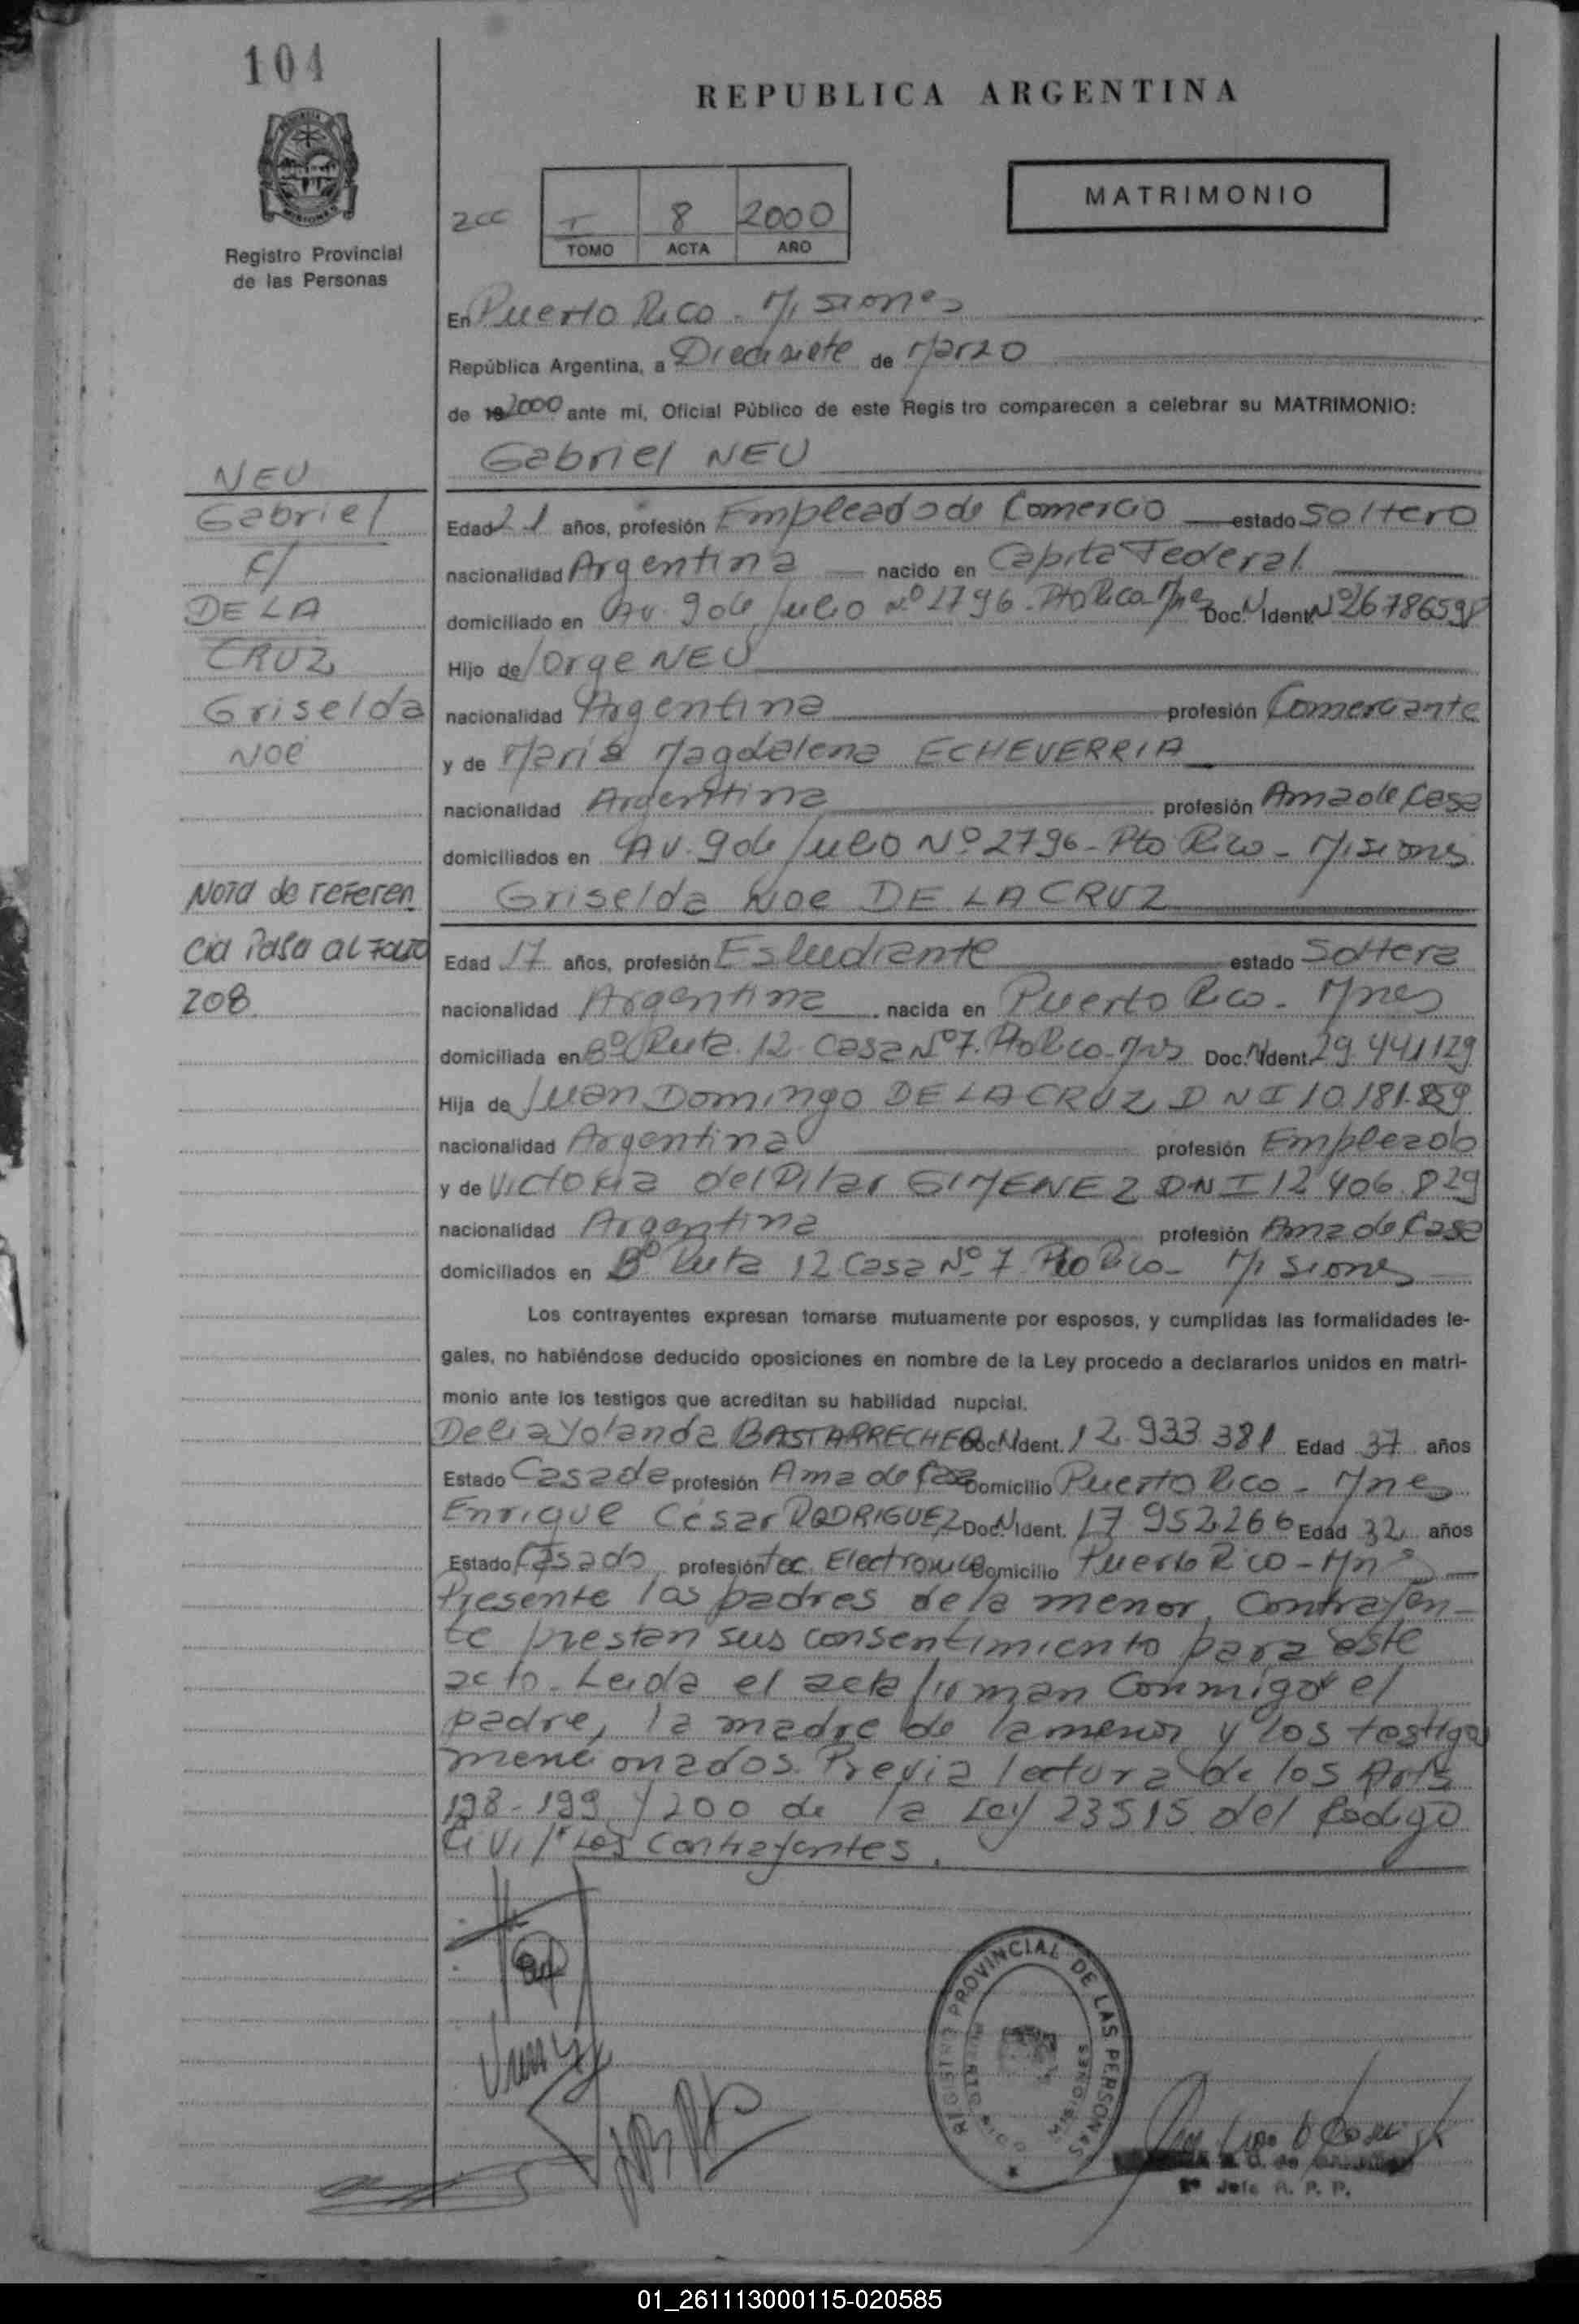 104
REPUBLICA ARGENTINA
MATRIMONIO
2cc
I 8 2000
TOMO ACTA AÑO
Registro Provincial
de las Personas
En Puerto Rico - Misiones
República Argentina, a Diecisiete de Marzo
de 192000 ante mi, Oficial Público de este Regis tro comparecen a celebrar su MATRIMONIO:
Gabriel NEU
NEU
Gabriel
c/
DE LA
CRUZ
Griselda
Noé
Edad 21 años, profesión Empleado de Comercio estado Soltero
nacionalidad Argentina nacido en Capital Federal
domiciliado en Av. 9 de Julio Nº 2796 - Pto Rico - Mnes Doc. N. Ident. Nº 26786598
Hijo de Jorge NEU
nacionalidad Argentina profesión Comerciante
y de María Magdalena ECHEVERRIA
nacionalidad Argentina profesión Ama de Casa
domiciliados en Av. 9 de Julio Nº 2796 - Pto Rico - Misiones
Griselda Noe DE LA CRUZ
Nota de referen
cia Pasa al Folio
208.
Edad 17 años, profesión Estudiante estado Soltera
nacionalidad Argentina nacida en Puerto Rico - Mnes
domiciliada en Bº Ruta 12 Casa Nº 7. Pto Rico - Mns Doc. N. Ident. 29.441.129
Hija de Juan Domingo DE LA CRUZ, DNI 10.181.859
nacionalidad Argentina profesión Empleado
y de Victoria del Pilar GIMENEZ DNI 12 406.829
nacionalidad Argentina profesión Ama de Casa
domiciliados en Bº Ruta 12 Casa Nº 7 Pto Rico - Misiones
Los contrayentes expresan tomarse mutuamente por esposos, y cumplidas las formalidades le-
gales, no habiéndose deducido oposiciones en nombre de la Ley procedo a declararlos unidos en matri-
monio ante los testigos que acreditan su habilidad nupcial.
Delia Yolanda BASTARRECHEA Doc. N. Ident. 12.933.381 Edad 37 años
Estado Casada profesión Ama de Casa Domicilio Puerto Rico - Mnes
Enrique César RODRIGUEZ Doc. N. Ident. 17 952.266 Edad 32 años
Estado Casado profesión Tec. Electronico Domicilio Puerto Rico - Mnes
Presente los padres de la menor, Contrayen-
te prestan sus consentimiento para este
acto. Leída el acta firman conmigo el
padre, la madre de la menor y los testigos
mencionados. Previa lectura de los Arts
198 - 199 y 200 de la Ley 23515 del Codigo
Civil Los Contrayentes.
REGISTRO PROVINCIAL DE LAS PERSONAS
PUERTO RICO MISIONES
Jefe R. P. P.
01_261113000115-020585